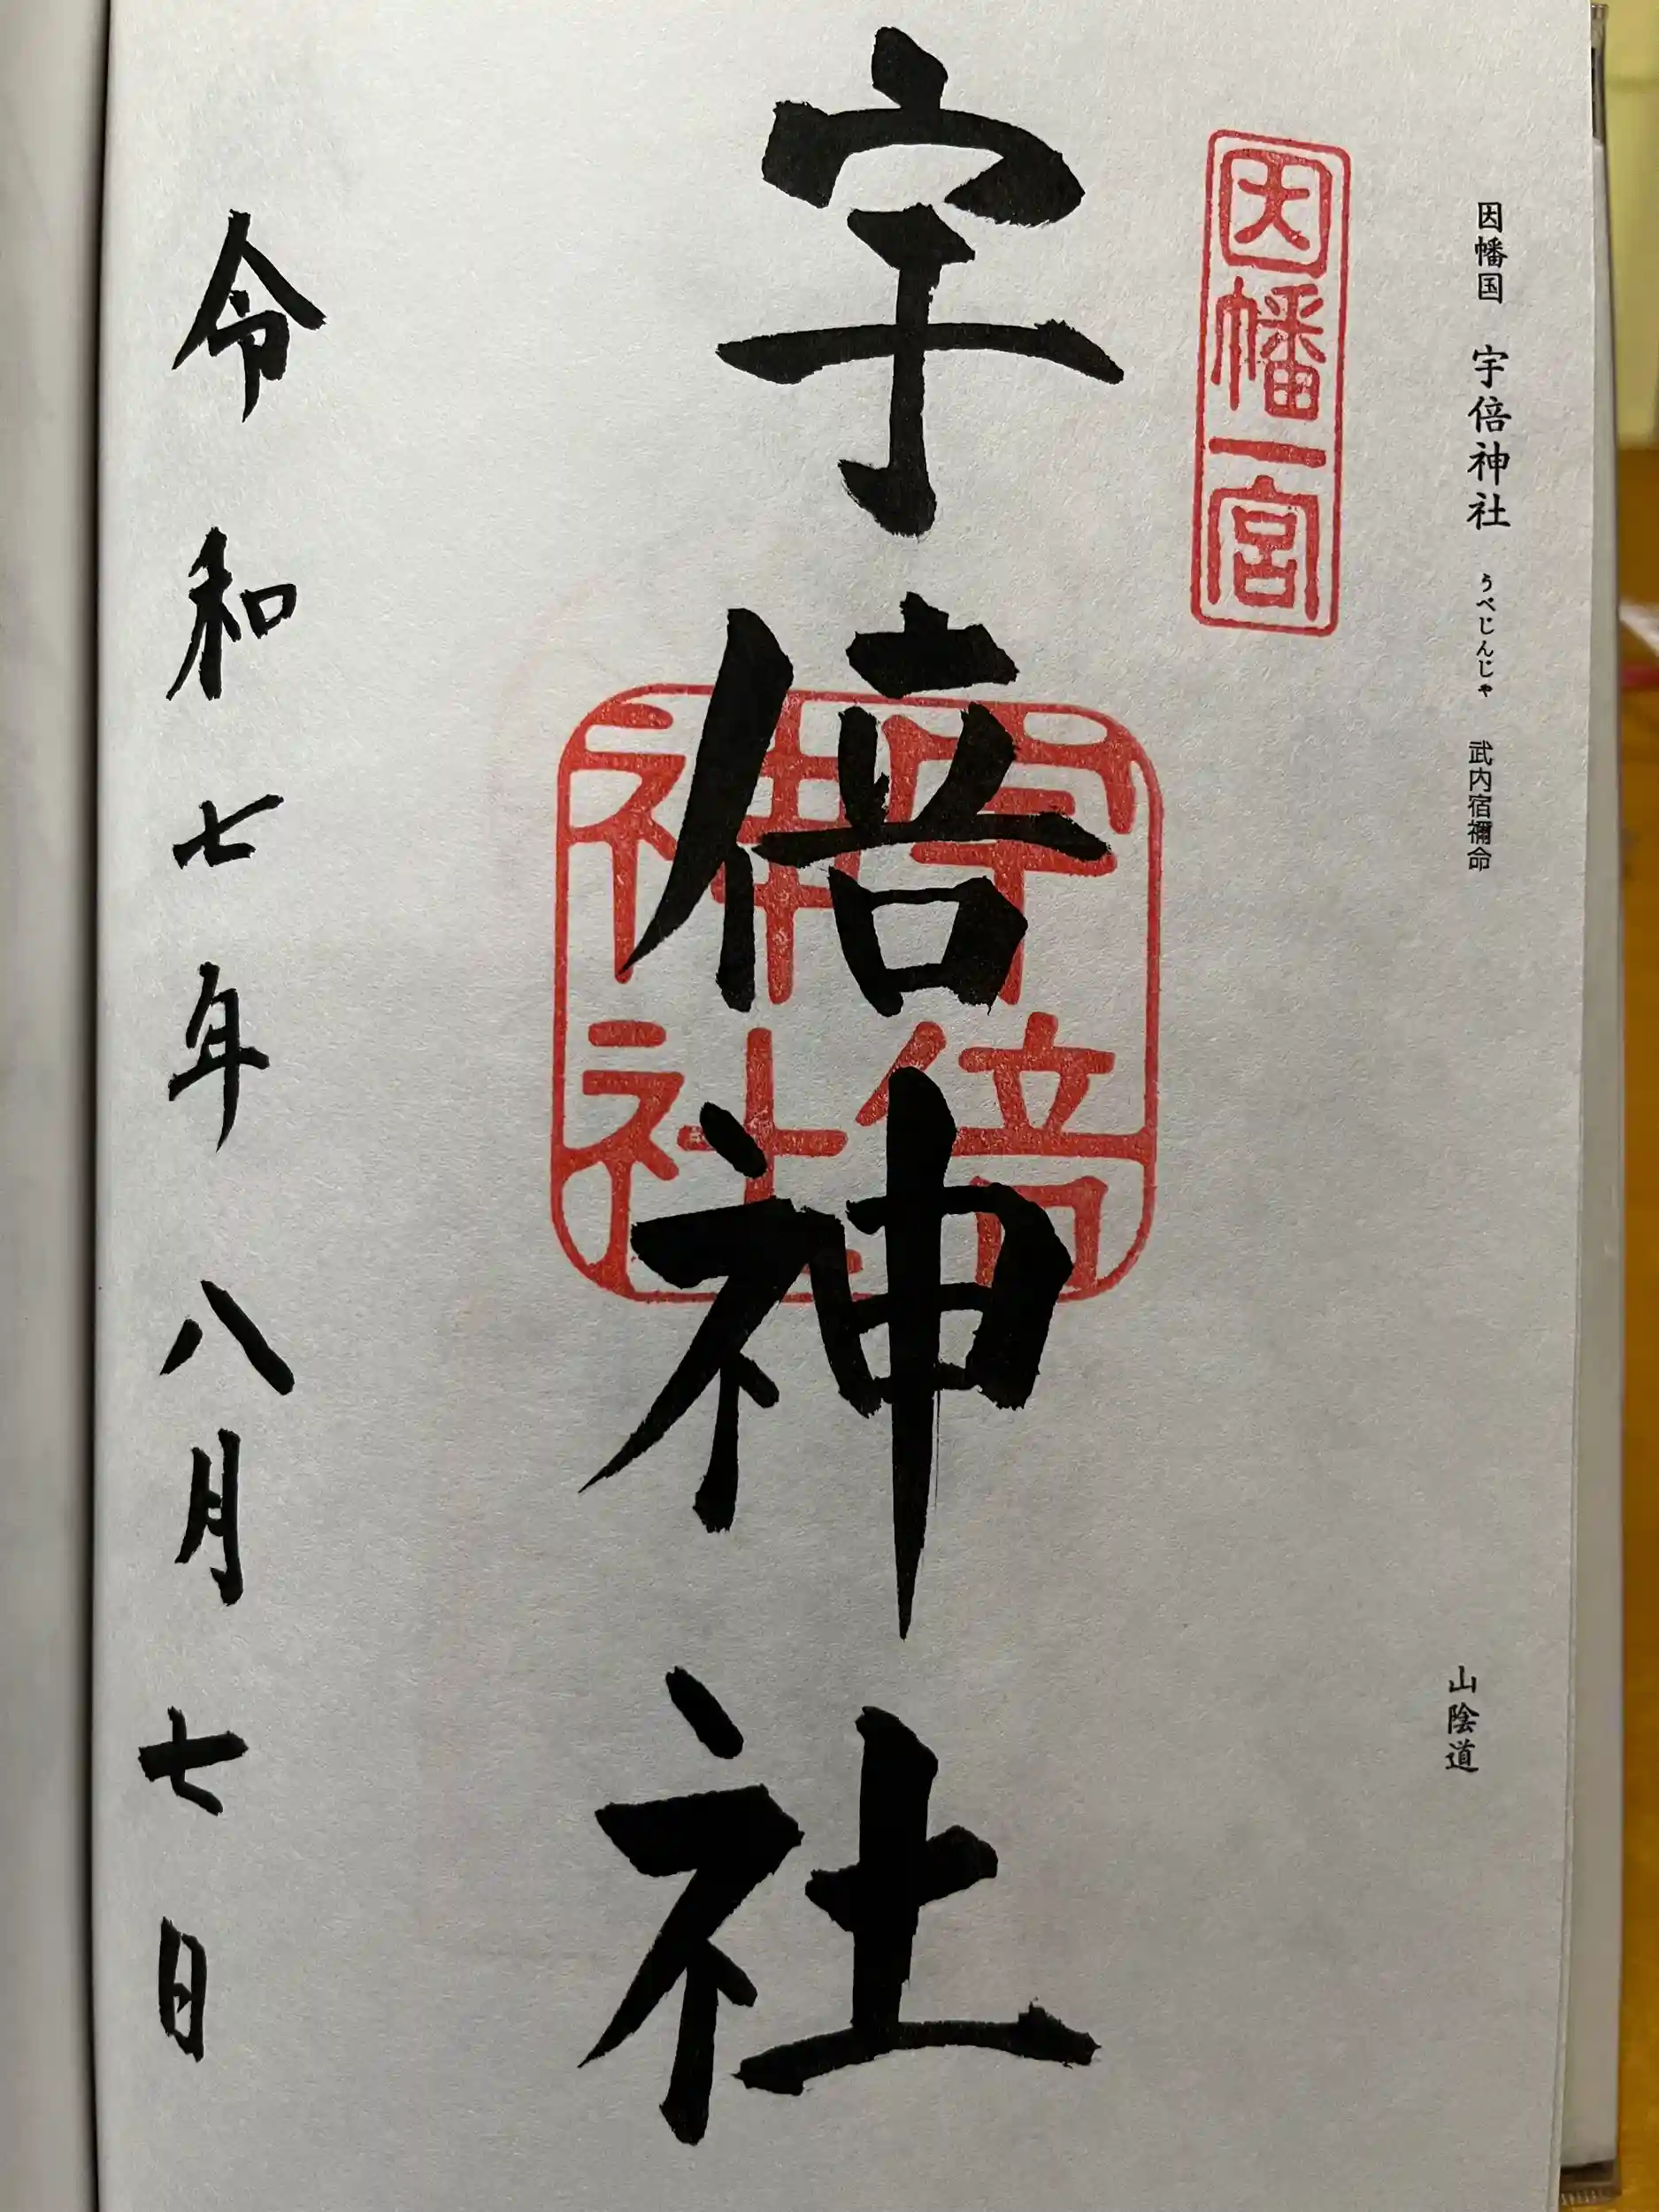 因幡国 宇倍神社 うべじんじゃ 武内宿禰命
山陰道
因幡一宮
宇倍神社
宇倍
神社
令和七年八月七日